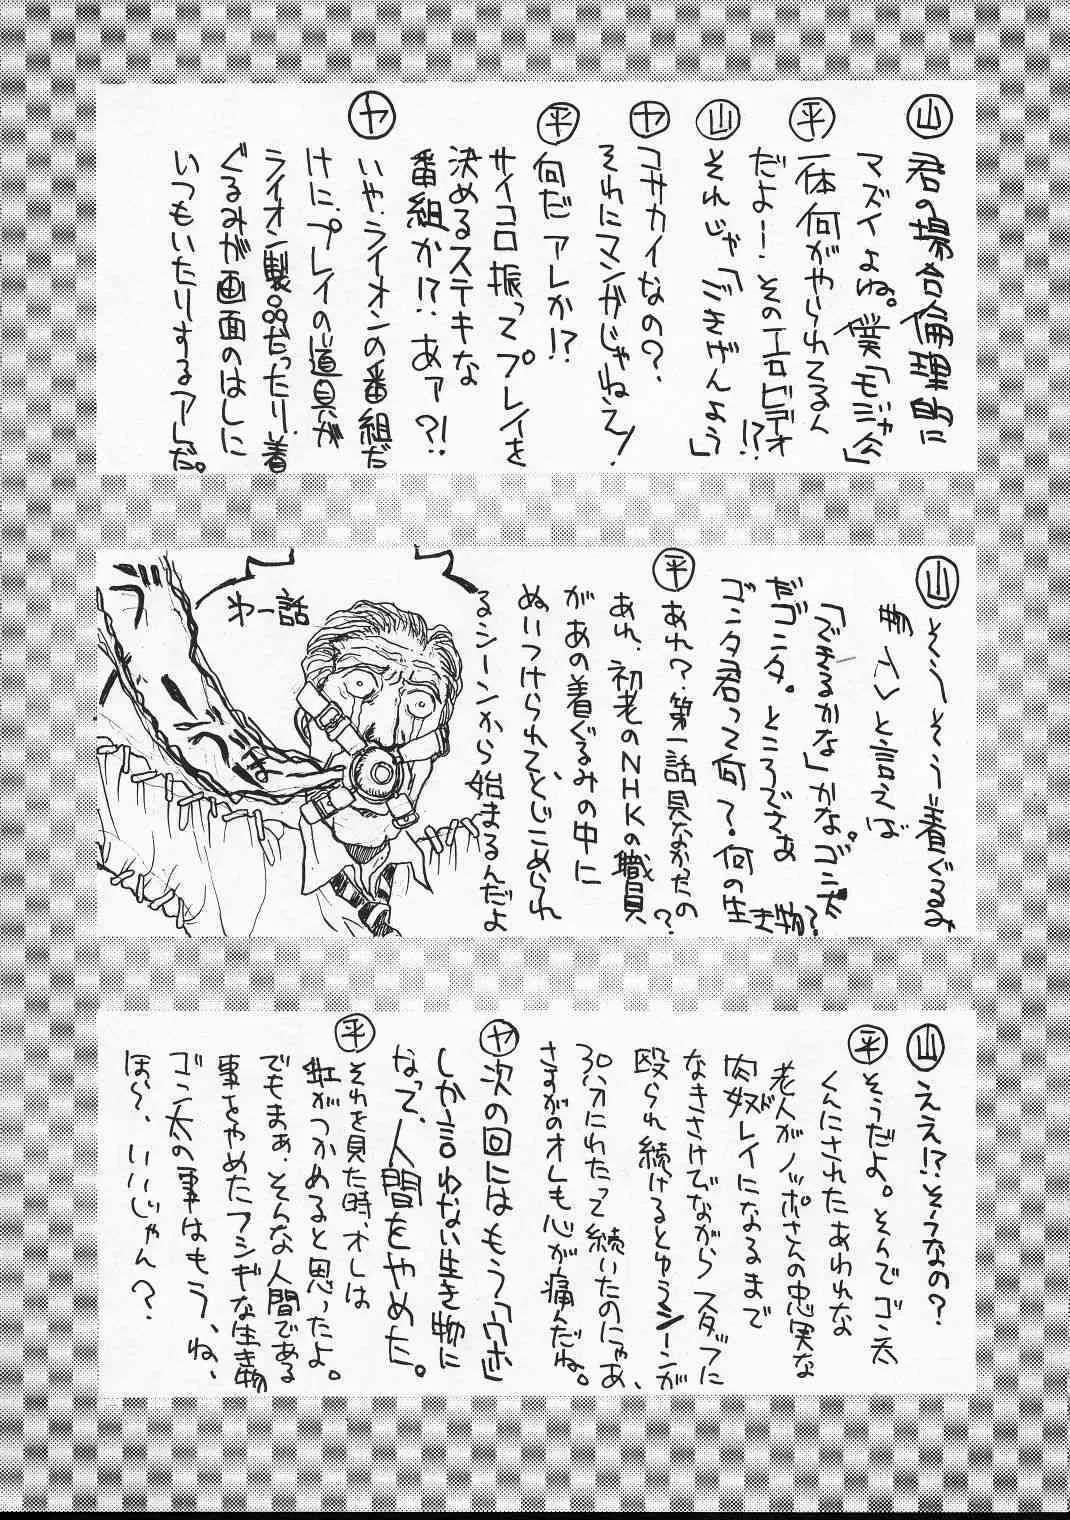 山 君の場合倫理的に
マズイよね。僕「モジャ公」
平 一体何がやられてるん
だよー!そのエロビデオ!?
山 それじゃ「ごきげんよう」
ヤ コサカイなの?
それにマンガじゃねえ!
平 何だアレか!?
サイコロ振ってプレイを
決めるステキな
番組か!?あァ?!
ヤ いや、ライオンの番組だ
けに、プレイの道具が
ライオン製品だったり、着
ぐるみが画面のはしに
いつもいたりするアレだ。
山 そ〜そう=着ぐるみ
と言えば
「できるかな」かな。ゴン太
だゴンタ。ところでさぁ
ゴンタ君って何?何の生き物?
平 あれ?第一話見なかったの?
あれ、初老のNHKの職員
があの着ぐるみの中に
ぬいつけられて、とじこめられ
るシーンから始まるんだよ
第一話
山 ええ!?そうなの?
平 そうだよ。そんでゴン太
くんにされたあわれな
老人がノッポさんの忠実な
肉奴レイになるまで
なきさけびながらスタッフに
殴られ続けるとゆうシーンが
30分にわたって続いたのにゃあ、
さすがのオレも心が痛んだね。
ヤ 次の回にはもう「ウホ」
しか言わない生き物に
なって、人間をやめた。
平 それを見た時、オレは
虹がつかめると思ったよ。
でもまぁ、そんな人間である
事をやめたフシギな生き物
ゴン太の事はもう、ね、
ほ〜、いいじゃん?